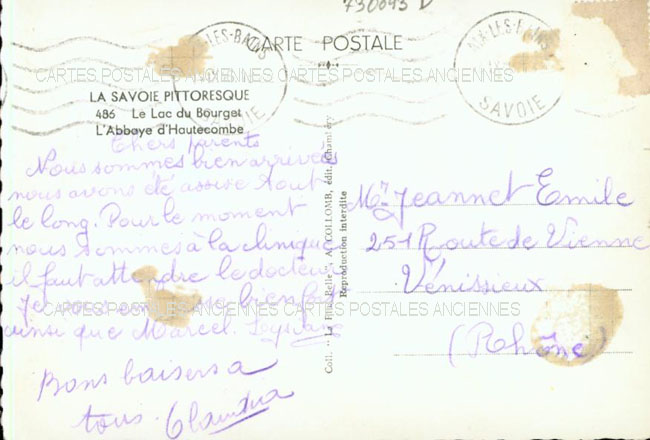 730093 D
CARTE POSTALE
AIX-LES-BAINS
SAVOIE
AIX-LES-BAINS
SAVOIE
CARTES POSTALES ANCIENNES CARTES POSTALES ANCIENNES
LA SAVOIE PITTORESQUE
486 Le Lac du Bourget
L'Abbaye d'Hautecombe
Chers parents
Nous sommes bien arrivées
nous avons été assise tout
le long. Pour le moment
nous sommes à la clinique
il faut attendre le docteur
Je vous
ainsi que Marcel.
Bons baisers a
tous. Claudia
CARTES POSTALES ANCIENNES CARTES POSTALES ANCIENNES
Coll. " La Plus Belle " A. COLLOMB, édit. Chambéry
Reproduction interdite
Mr Jeannet Emile
251 Route de Vienne
Vénissieux
(Rhône)